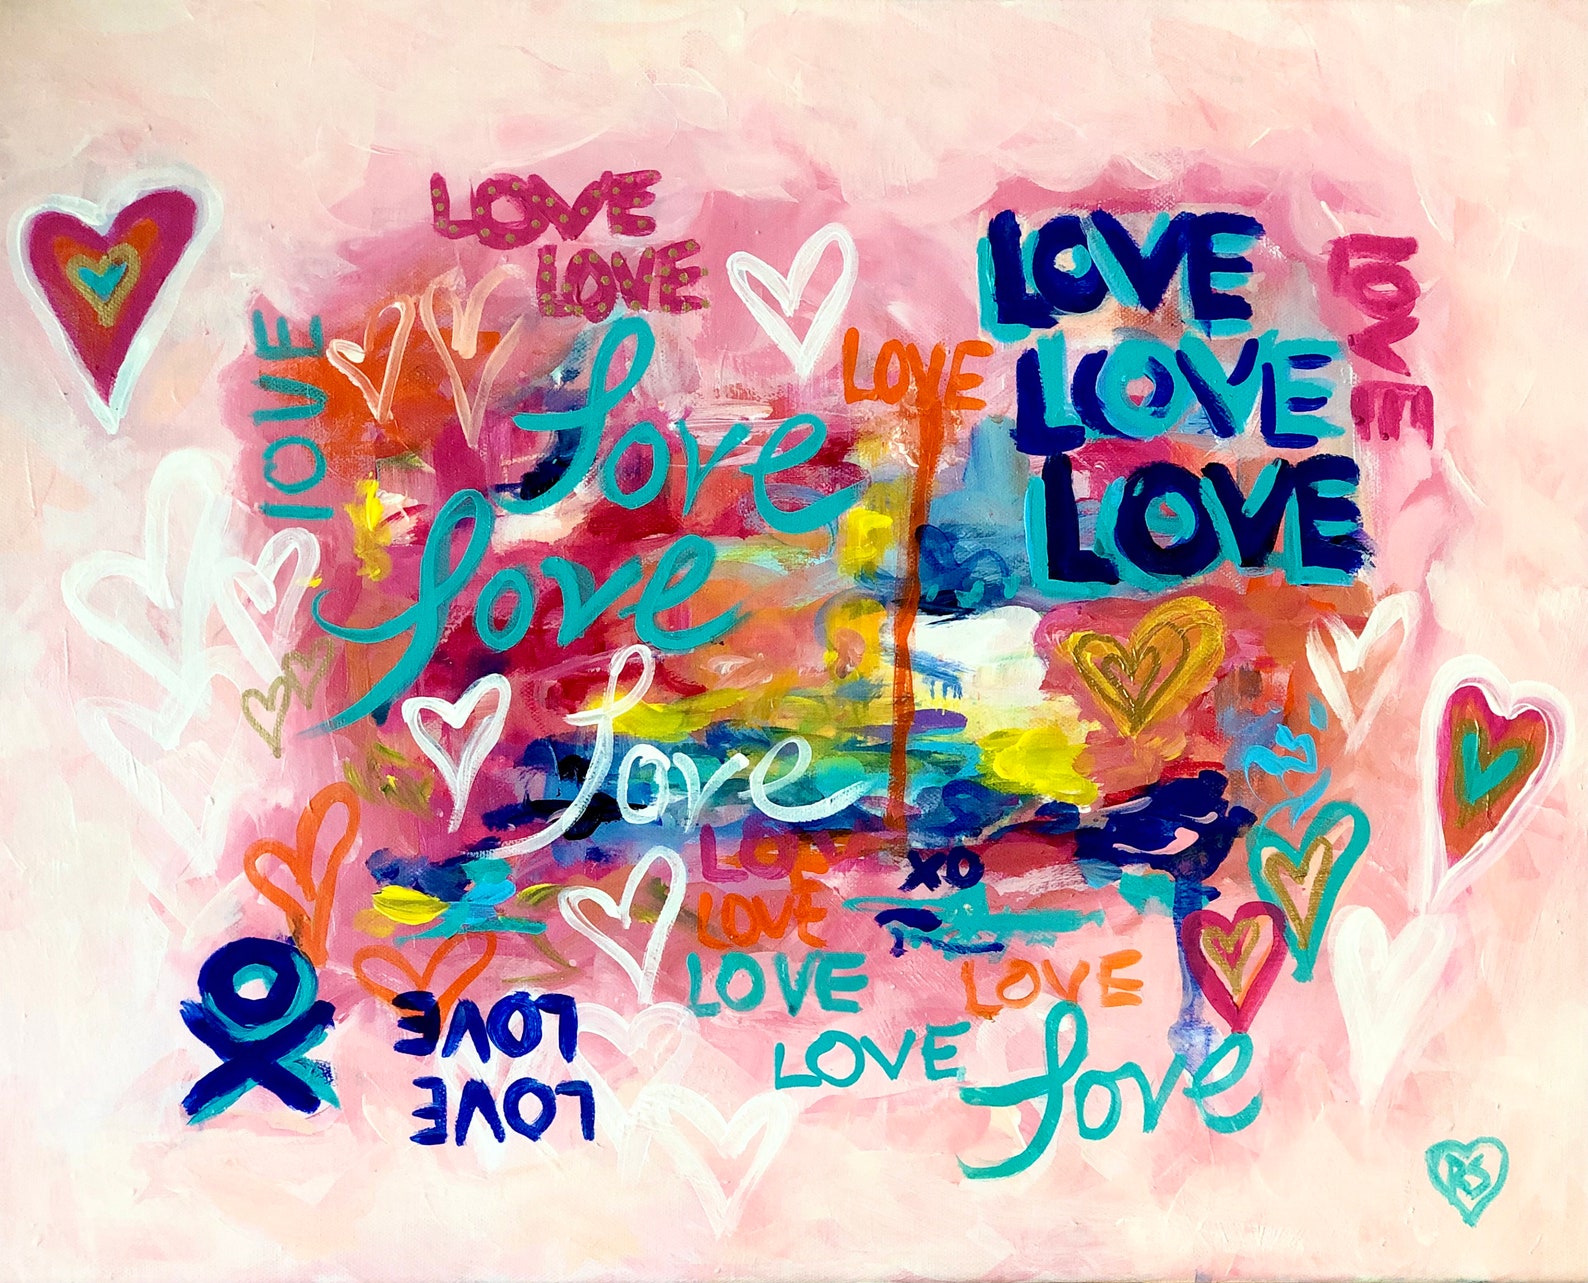 LOVE
LOVE
LOVE
LOVE
LOVE
LOVE
Love
LOVE
LOVE
LOVE
Love
Love
LOVE
XO
LOVE
LOVE
LOVE
OX
LOVE
LOVE
LOVE
Love
RS